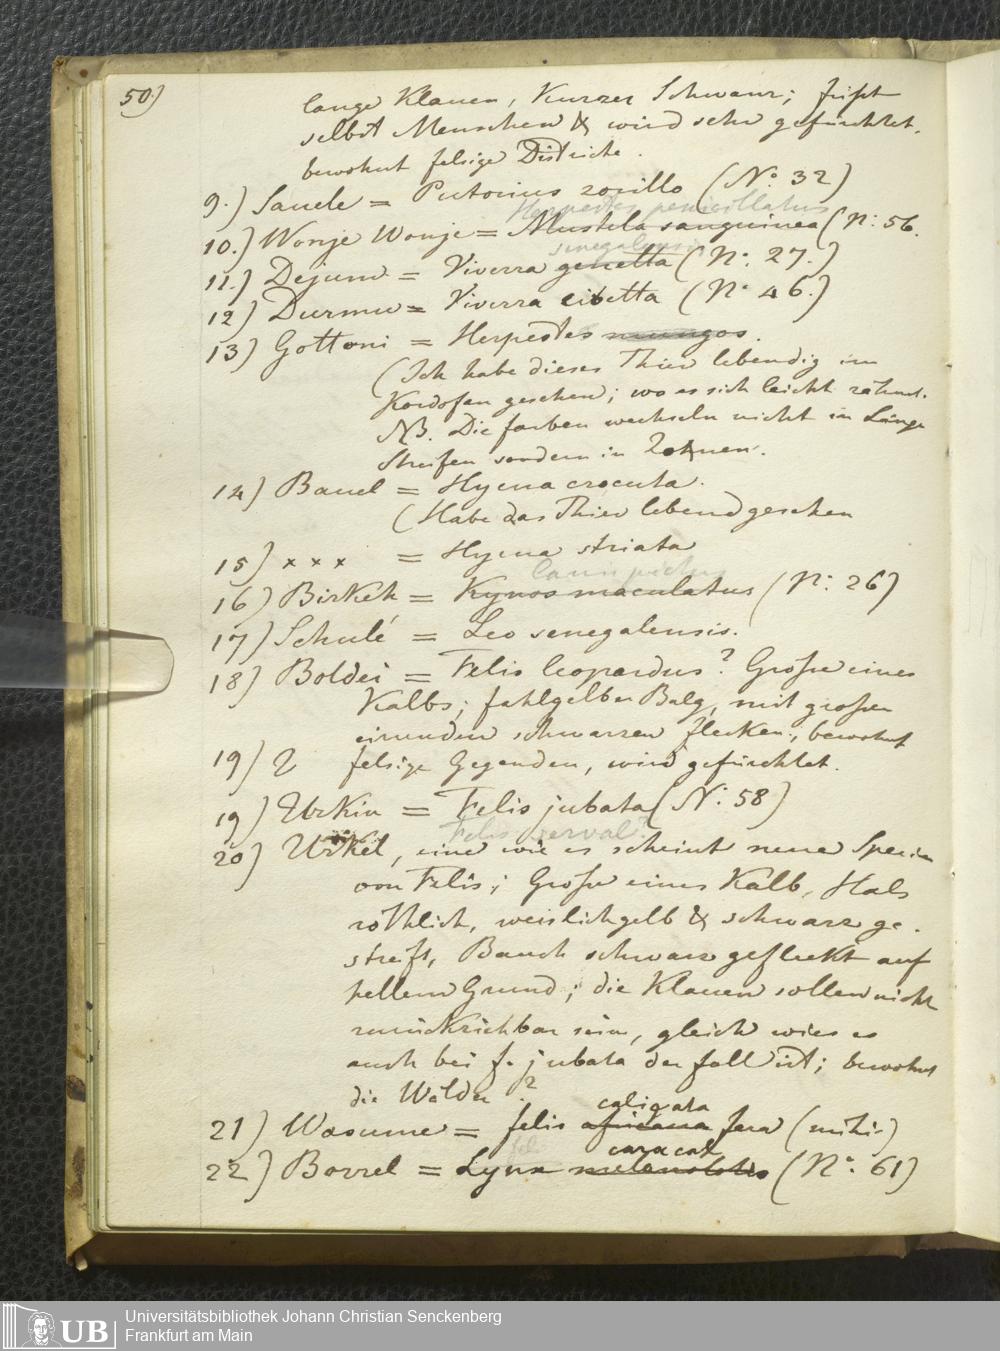 50)
lange Klauen, Kurzer Schwanz; frißt
selbst Menschen & wird sehr gefürchtet,
bewohnt felsige Districte.
9.) Saude = Putorius zorillo (No. 32)
Herpestes penicillatus
10.) Wonje Wonje = Mustela sanguinea (N: 56.
senegalensis
11.) Dejum = Viverra genetta (No. 27.)
12) Durmu = Viverra cibetta (No 46.)
13) Gottoni = Herpestes mungos.
(Ich habe dieses Thier lebendig im
Kordofan gesehen; wo es sich leicht zähmt.
NB. Die farben wechseln nicht in Länge
Streifen sondern in Zohnen.
14) Bauel = Hyena crocuta.
(Habe das Thier lebend gesehen
15) x x x = Hyena striata
Canis pictus
16) Birkéh = Kynos maculatus (N: 26)
17) Schulé = Leo senegalensis.
18) Boldei = Felis leopardus? Große eines
Kalbs; fahlgelber Balg, mit großen
eirunden schwarzen flecken; bewohnt
19) felsige Gegenden, wird gefürchtet.
19) Urkin = Felis jubata (N: 58)
Felis serval?
20) Urkel, eine wie es scheint neue Species
von Felis; Große eines Kalb, Hals
röthlich, weislichgelb & schwarz ge.
streift, Bauch schwarz geflekt auf
hellem Grund; die Klauen sollen nicht
zurückzichbar sein, gleich wies es
auch bei f. jubata der fall ist; bewohnt
die Wälder.?
caligata
21) Wosume = felis africana fera (mihi)
caracal
22) Borrel = Lynx melanolotis (No: 61)
UB
Universitätsbibliothek Johann Christian Senckenberg
Frankfurt am Main